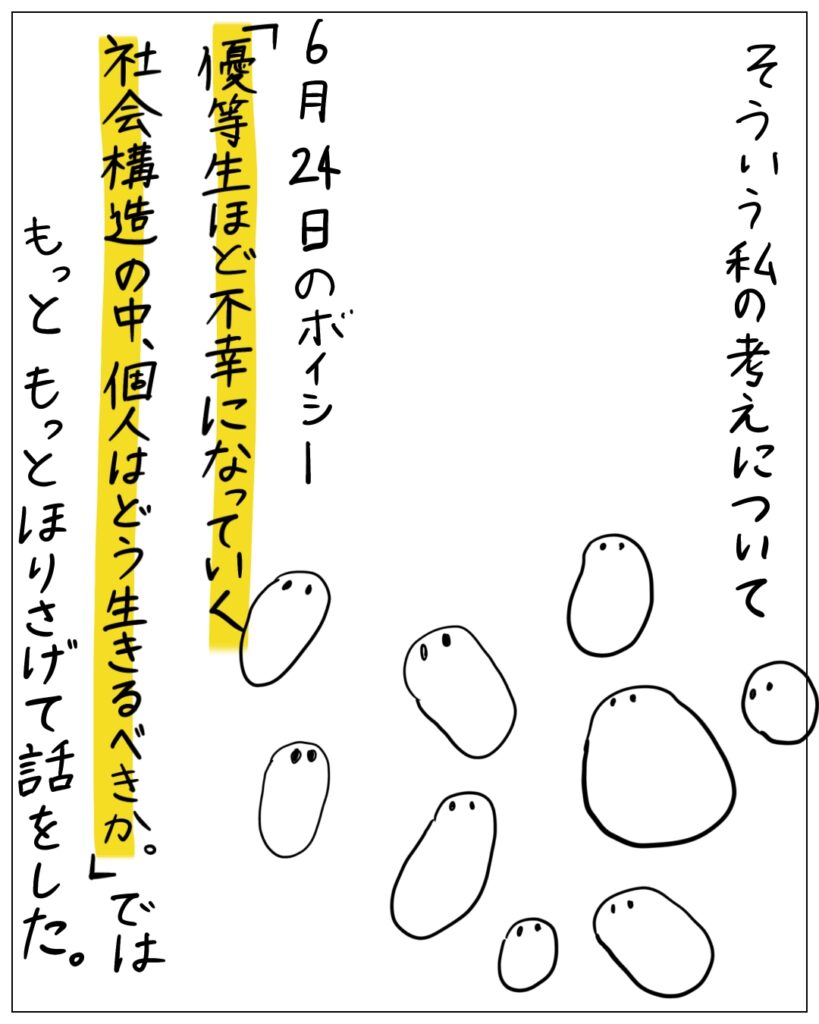 そういう私の考えについて
6月24日のボイシー
「優等生ほど不幸になっていく
社会構造の中、個人はどう生きるべきか。」では
もっと もっとほりさげて話をした。